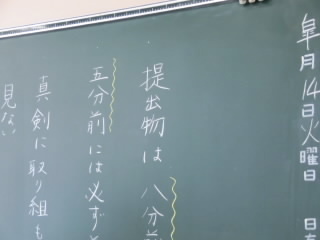 皐月14日火曜日 日
提出物は 八分前
五分前には必ず
真剣に取り組も
見ない